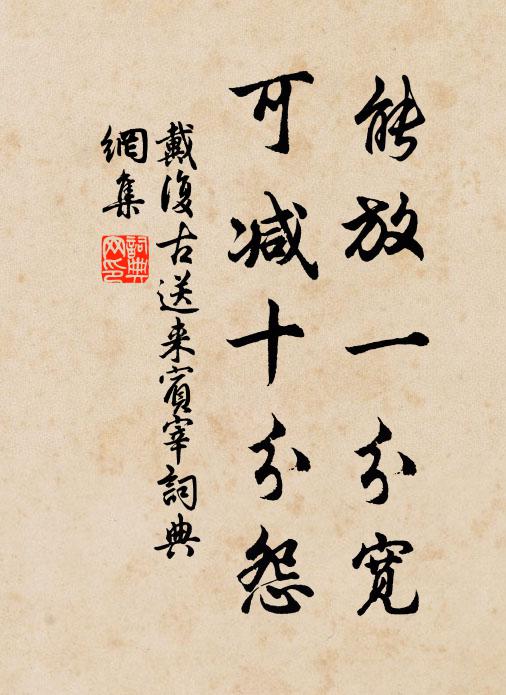 能放一分宽
可减十分怨
戴復古送来賓宰詞典
網集
詞典
网印